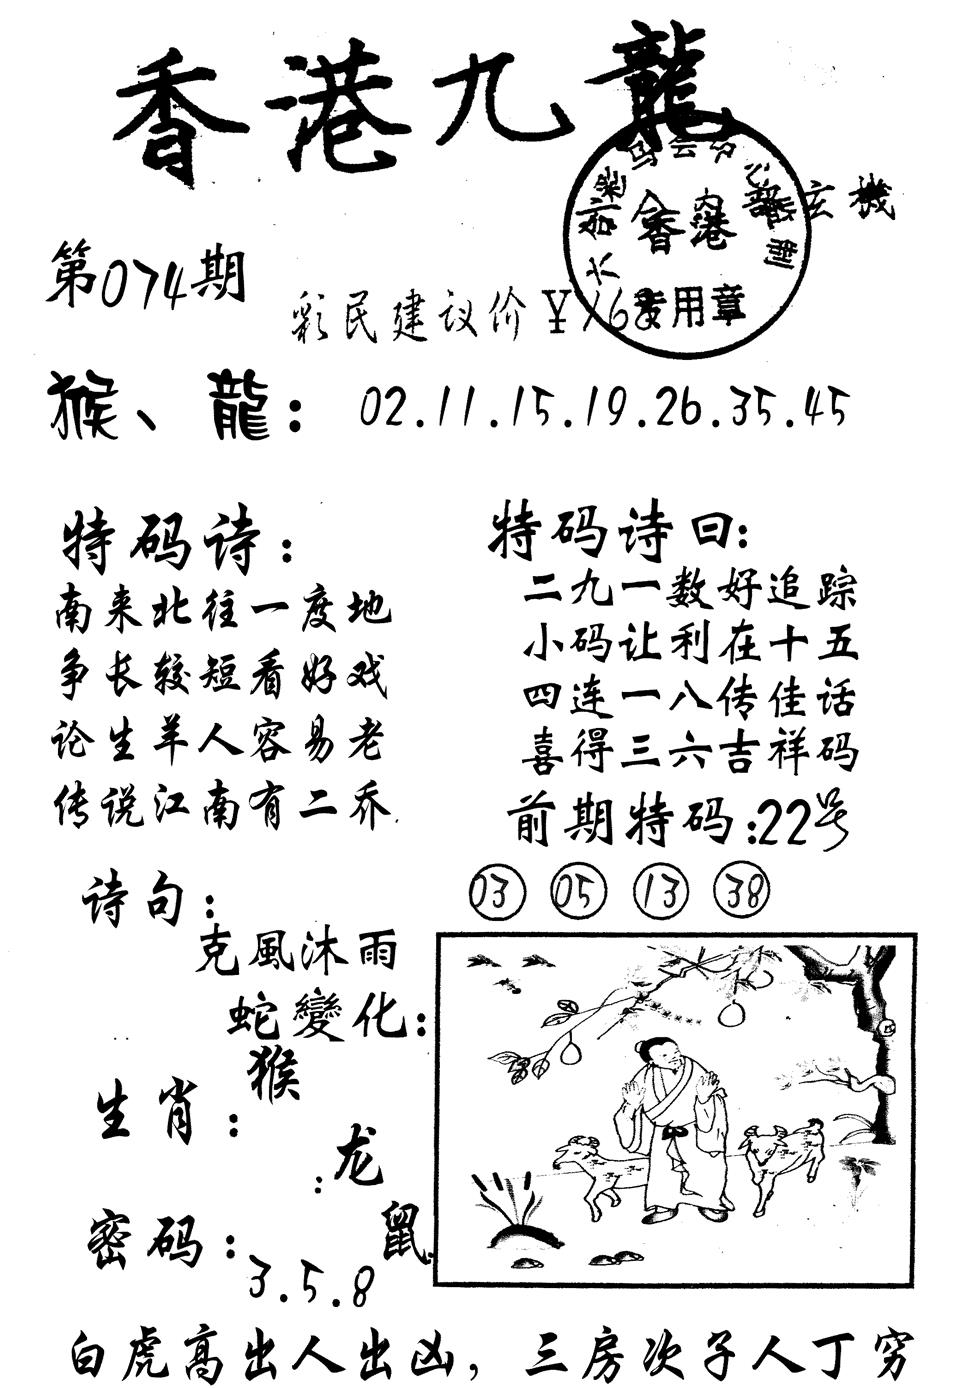 香港九龍
內部玄機
香港
专用章
第074期
彩民建议价￥168
猴、龍：02.11.15.19.26.35.45
特码诗：
南来北往一度地
争长较短看好戏
论生羊人容易老
传说江南有二乔
特码诗曰：
二九一数好追踪
小码让利在十五
四连一八传佳话
喜得三六吉祥码
前期特码：22号
03 05 13 38
诗句：
克風沐雨
蛇變化：
生肖：
猴
：龙
鼠
密码：
3.5.8
白虎高出人出凶，三房次子人丁穷